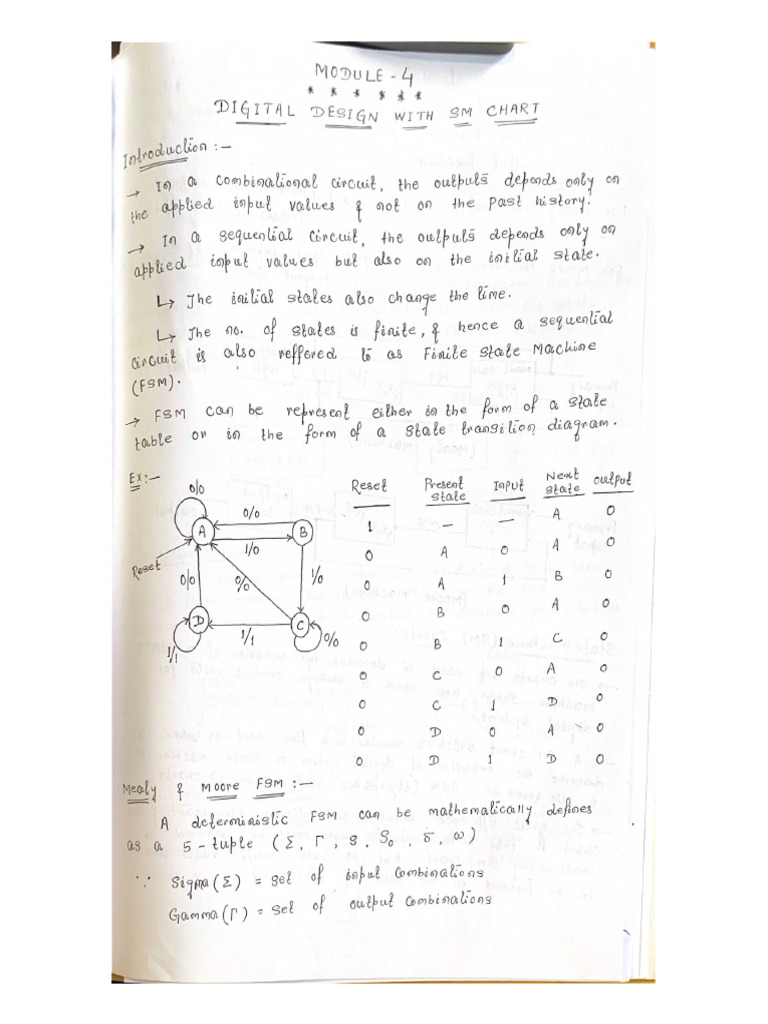 MODULE - 4
* * * * * *
DIGITAL DESIGN WITH SM CHART
Introduction :-
→ In a combinational circuit, the outputs depends only on
the applied input values & not on the past history.
→ In a sequential circuit, the outputs depends only on
applied input values but also on the initial state.
↳ The initial states also change the time.
↳ The no. of states is finite, & hence a sequential
circuit is also reffered to as Finite State Machine
(FSM).
→ FSM can be represent either in the form of a state
table or in the form of a state transition diagram.
Ex:-
0/0
A
0/0
1/0
B
Reset
0/0
0/0
1/0
D
1/1
C
1/1
0/0
Reset Present state Input Next state output
1 — — A 0
0 A 0 A 0
0 A 1 B 0
0 B 0 A 0
0 B 1 C 0
0 C 0 A 0
0 C 1 D 0
0 D 0 A 0
0 D 1 D 0
Mealy & Moore FSM :-
A deterministic FSM can be mathematically defines
as a 5-tuple (Σ, Γ, S, S₀, δ, ω)
∵ Sigma(Σ) = set of input combinations
Gamma(Γ) = set of output combinations